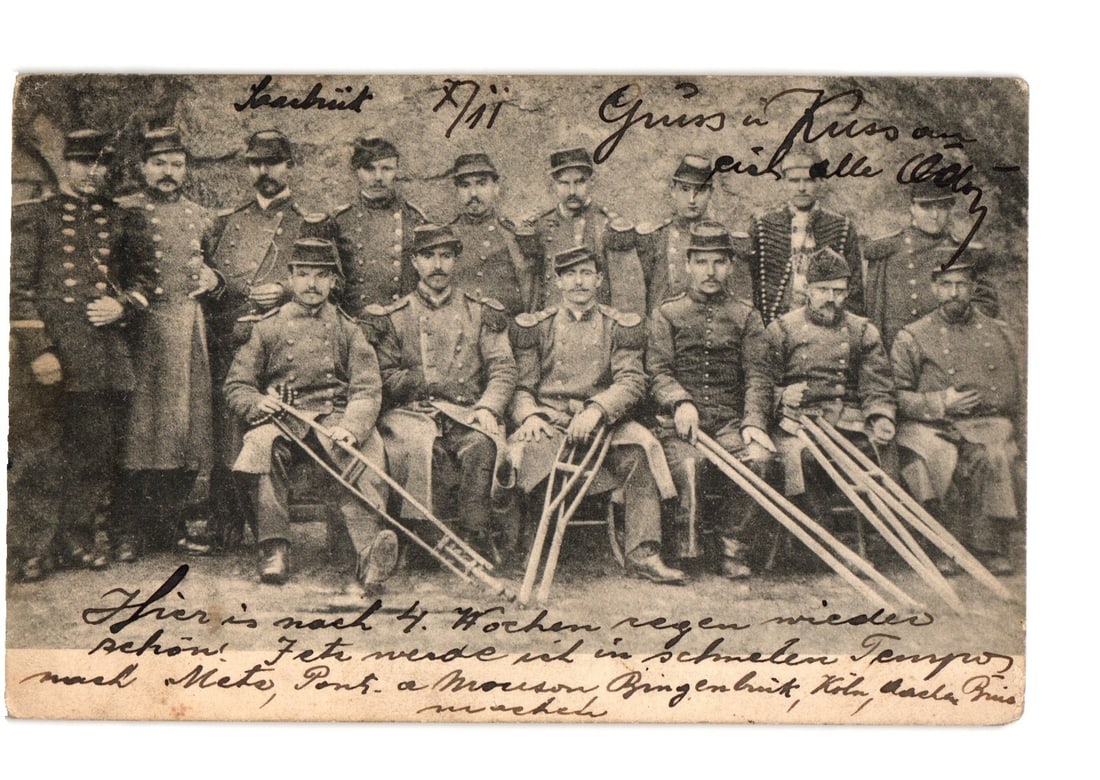 Saarbrük
7/11
Gruss u Kuss an
eich alle Ödön
Hier is nach 4. Wochen regen wieder
schön! Jetz werde ich in schnelen Tempo
nach Metz, Pont. a Mouson Bingenbrük, Köln, Aachen
machen